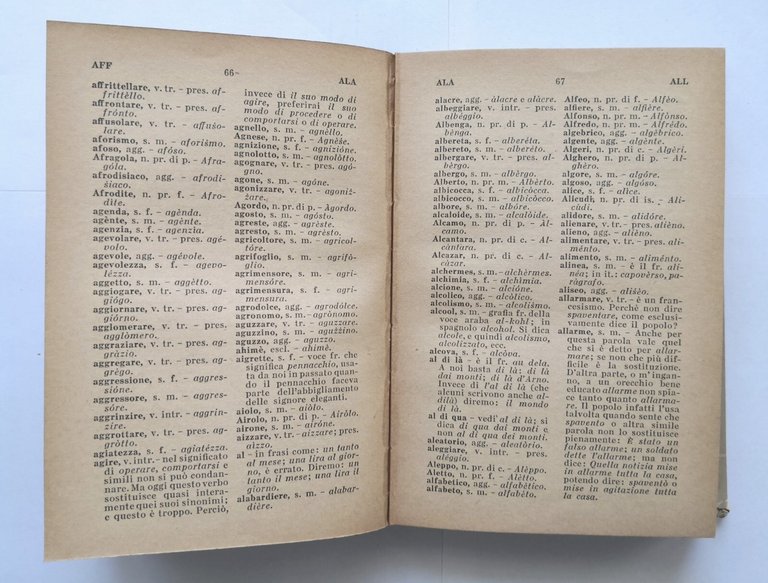 AFF
66
ALA
affrittellare, v. tr. - pres. af-
frittèllo.
affrontare, v. tr. - pres. af-
frónto.
affusolare, v. tr. - affuso-
lare.
aforismo, s. m. - aforismo.
afoso, agg. - afóso.
Afragola, n. pr. di p. - Afra-
góla.
afrodisiaco, agg. - afrodi-
sìaco.
Afrodite, n. pr. f. - Afro-
dite.
agenda, s. f. - agènda.
agènte, s. m. - agènte.
agenzia, s. f. - agenzìa.
agevolare, v. tr. - pres. agé-
volo.
agevole, agg. - agévole.
agevolezza, s. f. - agevo-
lézza.
aggetto, s. m. - aggètto.
aggiogare, v. tr. - pres. ag-
giógo.
aggiornare, v. tr. - pres. ag-
giórno.
agglomerare, v. tr. - pres.
agglòmero.
aggraziare, v. tr. - pres. ag-
gràzio.
aggregare, v. tr. - pres. ag-
grègo.
aggressione, s. f. - aggres-
sióne.
aggressore, s. m. - aggres-
sóre.
aggrinzire, v. intr. - aggrin-
zire.
aggrottare, v. tr. - pres. ag-
gròtto.
agiatezza, s. f. - agiatézza.
agire, v. intr. - nel significato
di operare, comportarsi e
simili non si può condan-
nare. Ma oggi questo verbo
sostituisce quasi intera-
mente quei suoi sinonimi;
e questo è troppo. Perciò,
invece di il suo modo di
agire, preferirai il suo
modo di procedere o di
comportarsi o di operare.
agnello, s. m. - agnèllo.
Agnese, n. pr. f. - Agnèse.
agnizione, s. f. - agnizióne.
agnolotto, s. m. - agnolòtto.
agognare, v. tr. - pres. agó-
gno.
agone, s. m. - agóne.
agonizzare, v. tr. - agoniz-
zare.
Agordo, n. pr. di p. - Àgordo.
agosto, s. m. - agósto.
agreste, agg. - agrèste.
agresto, s. m. - agrèsto.
agricoltore, s. m. - agricol-
tóre.
agrifoglio, s. m. - agrifó-
glio.
agrimensore, s. m. - agri-
mensóre.
agrimensura, s. f. - agri-
mensura.
agrodolce, agg. - agrodólce.
agronomo, s. m. - agrònomo.
aguzzare, v. tr. - aguzzare.
aguzzino, s. m. - aguzzino.
aguzzo, agg. - aguzzo.
ahimè, escl. - ahimè.
aigrette, s. f. - voce fr. che
significa pennacchio, usa-
ta da noi in passato quan-
do il pennacchio faceva
parte dell'abbigliamento
delle signore eleganti.
aiolo, s. m. - aiòlo.
Airolo, n. pr. di p. - Airòlo.
airone, s. m. - airóne.
aizzare, v. tr. - aizzare; pres.
aizzo.
al - in frasi come: un tanto
al mese; una lira al gior-
no, è errato. Diremo: un
tanto il mese; una lira il
giorno.
alabardiere, s. m. - alabar-
dière.
ALA
67
ALL
alacre, agg. - àlacre e alàcre.
albeggiare, v. intr. - pres.
albéggio.
Albenga, n. pr. di p. - Al-
bènga.
albereta, s. f. - alberéta.
albereto, s. m. - alberéto.
albergare, v. intr. - pres. al-
bèrgo.
albergo, s. m. - albèrgo.
Alberto, n. pr. m. - Albèrto.
albicocca, s. f. - albicòcca.
albicocco, s. m. - albicòcco.
albore, s. m. - albóre.
alcaloide, s. m. - alcalòide.
Alcamo, n. pr. di p. - Àl-
camo.
Alcantara, n. pr. di c. - Al-
càntara.
Alcazar, n. pr. di c. - Al-
càzar.
alchermes, s. m. - alchèrmes.
alchimia, s. f. - alchìmia.
alcione, s. m. - alcióne.
alcolico, agg. - alcòlico.
alcolismo, s. m. - alcolismo.
alcool, s. m. - grafia fr. della
voce araba al-kohl; in
spagnolo alcohol. Si dica
alcole, e quindi alcolismo,
alcolizzato, ecc.
alcova, s. f. - alcòva.
al di là - è il fr. au dela.
A noi basta di là: di là
dai monti; di là d'Arno.
Invece di l'al di là (che
alcuni scrivono anche al-
dilà) diremo: il mondo
di là.
al di qua - vedi al di là; si
dica di qua dai monti e
non al di qua dai monti.
aleatorio, agg. - aleatòrio.
aleggiare, v. intr. - pres.
aléggio.
Aleppo, n. pr. di c. - Alèppo.
Aletto, n. pr. f. - Alètto.
alfabetico, agg. - alfabètico.
alfabeto, s. m. - alfabèto.
Alfeo, n. pr. di f. - Alfèo.
alfiere, s. m. - alfière.
Alfonso, n. pr. m. - Alfónso.
Alfredo, n. pr. m. - Alfrédo.
algebrico, agg. - algèbrico.
algente, agg. - algènte.
Algeri, n. pr. di c. - Algèri.
Alghero, n. pr. di p. - Al-
ghèro.
algore, s. m. - algóre.
algoso, agg. - algóso.
alice, s. f. - alice.
Alicudi, n. pr. di is. - Ali-
cùdi.
alidore, s. m. - alidóre.
alienare, v. tr. - pres. alièno.
alieno, agg. - alièno.
alimentare, v. tr. - pres. ali-
ménto.
alimento, s. m. - aliménto.
alinea, s. m. - è il fr. ali-
néa; in it.: capovèrso, pa-
ràgrafo.
aliseo, agg. - alisèo.
allarmare, v. tr. - è un fran-
cesismo. Perché non dire
spaventare, come esclusi-
vamente dice il popolo?
allarme, s. m. - Anche per
questa parola vale quel
che si è detto per allar-
mare; se non che più dif-
ficile è la sostituzione.
D'altra parte, o m'ingan-
no, a un orecchio bene
educato allarme non spia-
ce tanto quanto allarma-
re. Il popolo infatti l'usa
talvolta quando sente che
spavento o altra simile
parola non lo sostituisce
pienamente: È stato un
falso allarme; un soldato
dette l'allarme; ma non
dice: Quella notizia mise
in allarme tutta la casa,
potendo dire: spaventò o
mise in agitazione tutta
la casa.